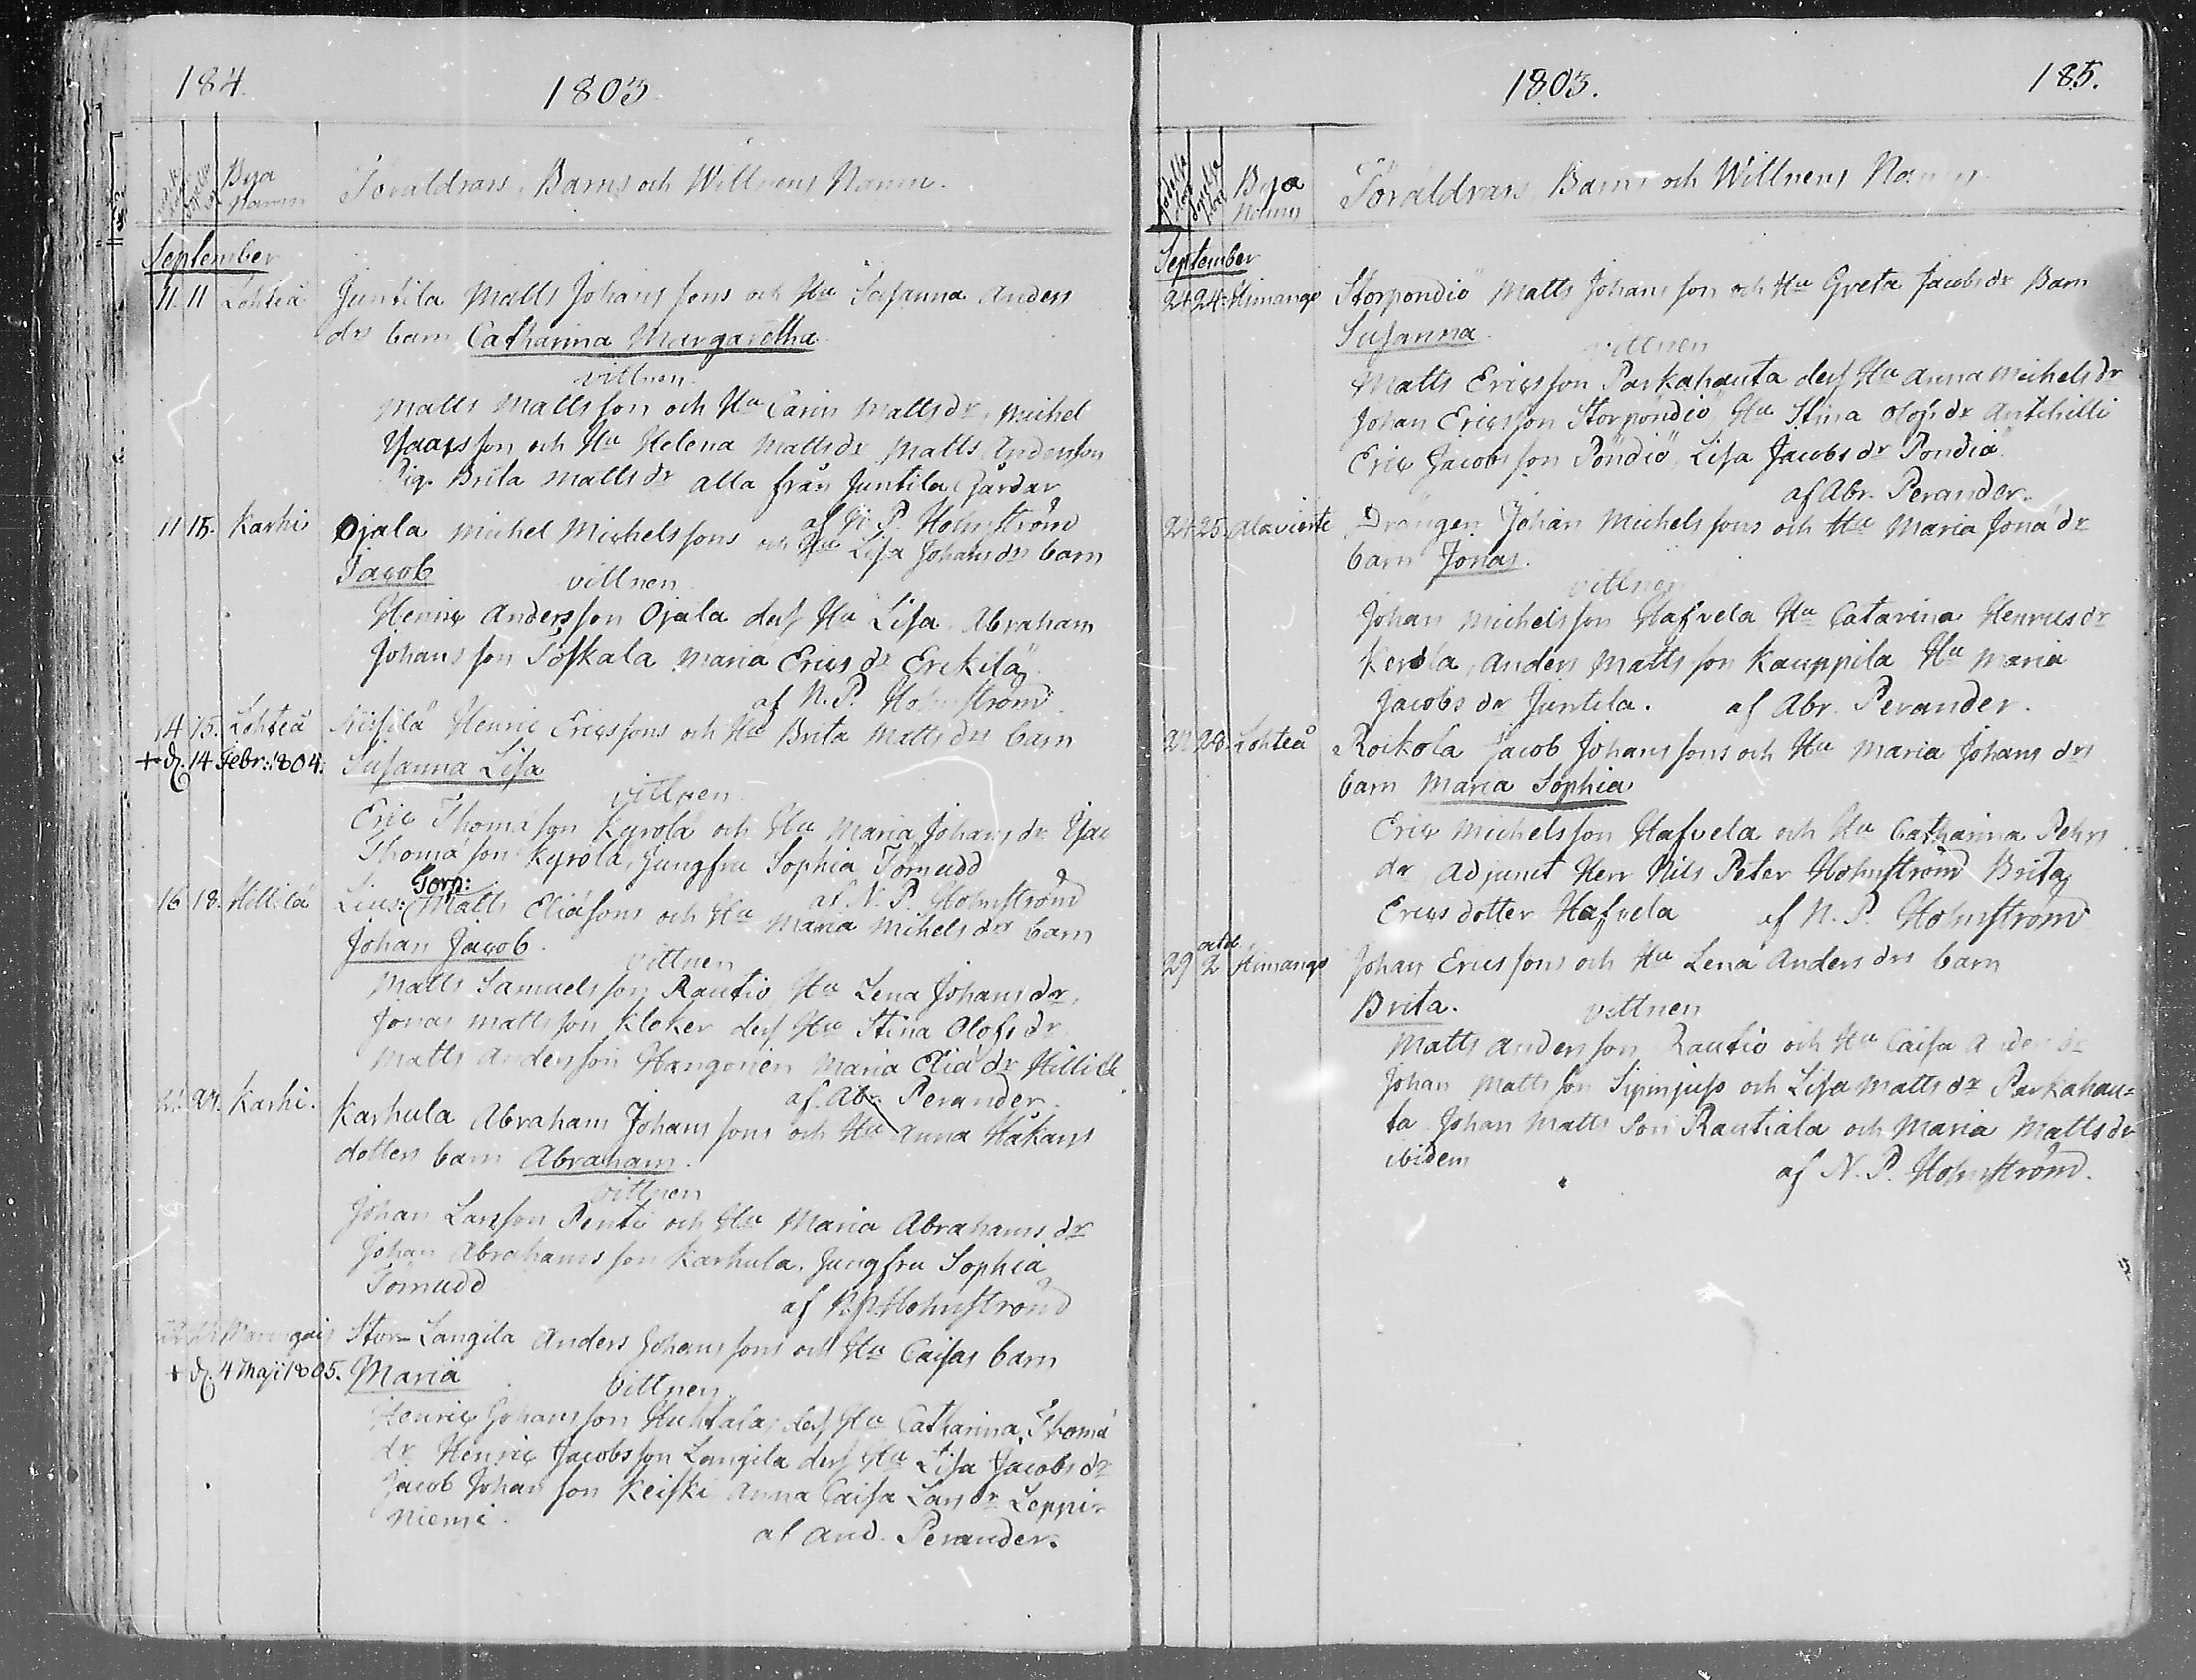 184.
1803
Bya
Namn
Föräldrars, Barns och Wittnens Namn.
September
11. 11 Lohteå Juntila Matts Johans sons och Hu Susanna Anders
drs barn Catharina Margaretha
vittnen.
Matts Mattsson och Hu Carin Matts dr, Michel
Ysaacsson och Hu Helena Matts dr Matts Andersson
Pig. Brita Matts dr alla från Juntila Gårdar
af N. P. Holmström
11 15. Karhi Ojala Michel Michelssons och Hu Lisa Johans drs barn
Jacob
vittnen
Henric Andersson Ojala dess Hu Lisa, Abraham
Johansson Toskala Maria Erics dr Erckilä
af N. P. Holmström
14 15. Lohteå Henric Ericssons och Hu Brita Matts drs barn
+ d. 14 Febr: 1804. Susanna Lisa
vittnen
Eric Thomasson Kyrölä och Hu Maria Johans dr Ysac
Thomason Kyrölä, Jungfru Sophia Törnudd
af N. P. Holmström
16 18. Hillilä Torp: Matts Eliæsons och Hu Maria Mihels drs barn
Johan Jacob.
vittnen
Matts Samuelsson Rautio, Hu Lena Johans dr,
Jonas Mattsson Kloker dess Hu Stina Olofs dr
Matts Andersson Hangonen Maria Eliæ dr Hillilä
af Abr. Perander.
Karhi. Karhula Abraham Johans sons och Hu Anna Håkans
dotters barn Abraham.
vittnen
Johan Larsson Penti och Hu Maria Abrahams dr
Johan Abrahamsson Karhula. Jungfru Sophia
Törnudd
af N. P. Holmström
Stor-Langila Anders Johanssons och Hu Caisas barn
+ d. 4 Maji 1805. Maria
Vittnen
Henric Johansson Huhtala, dess Hu Catharina Thomæ
dr Henric Jacobsson Langila dess Hu Lisa Jacobs dr
Jacob Johansson Keiski Anna Caisa Lars dr Leppi-
niemi.
af And. Perander.
1803.
185.
Bya
Namn
Föräldrars, Barns och Wittnens Namn
September
24. Himango Storpöndiö Matts Johansson och Hu Greta Jacobs dr Barn
Susanna.
vittnen
Matts Ericsson Parkahauta dess Hu Anna Michels dr
Johan Ericsson Storpöndiö, Hu Stina Olofs dr Anttihilli
Eric Jacobsson Pöndiö, Lisa Jacobs dr Pöndiö
af Abr. Perander.
24 25. Alavierte Drängen Johan Michelssons och Hu Maria Jonæ dr
barn Jonas.
vittnen
Johan Michelsson Hafvela Hu Catarina Henrics dr
Kerola, Anders Mattsson Kauppila Hu Maria
Jacobs dr Juntila. af Abr. Perander.
28. Lohteå Roikola Jacob Johans sons och Hu Maria Johans drs
barn Maria Sophia
Eric Michelsson Hafvela och Hu Catharina Pehrs
dr Adjunct Herr Nils Peter Holmström Brita
Erics dotter Hafvela af N. P. Holmström
29 octob. 2 Himango Johan Ericssons och Hu Lena Anders drs barn
Brita.
vittnen
Matts Andersson Rautio och Hu Caisa Anders dr
Johan Mattsson Sipinjuss och Lisa Matts dr Parkahau=
ta Johan Matts Son Rautiala och Maria Matts dr
ibidem
af N. P. Holmström.